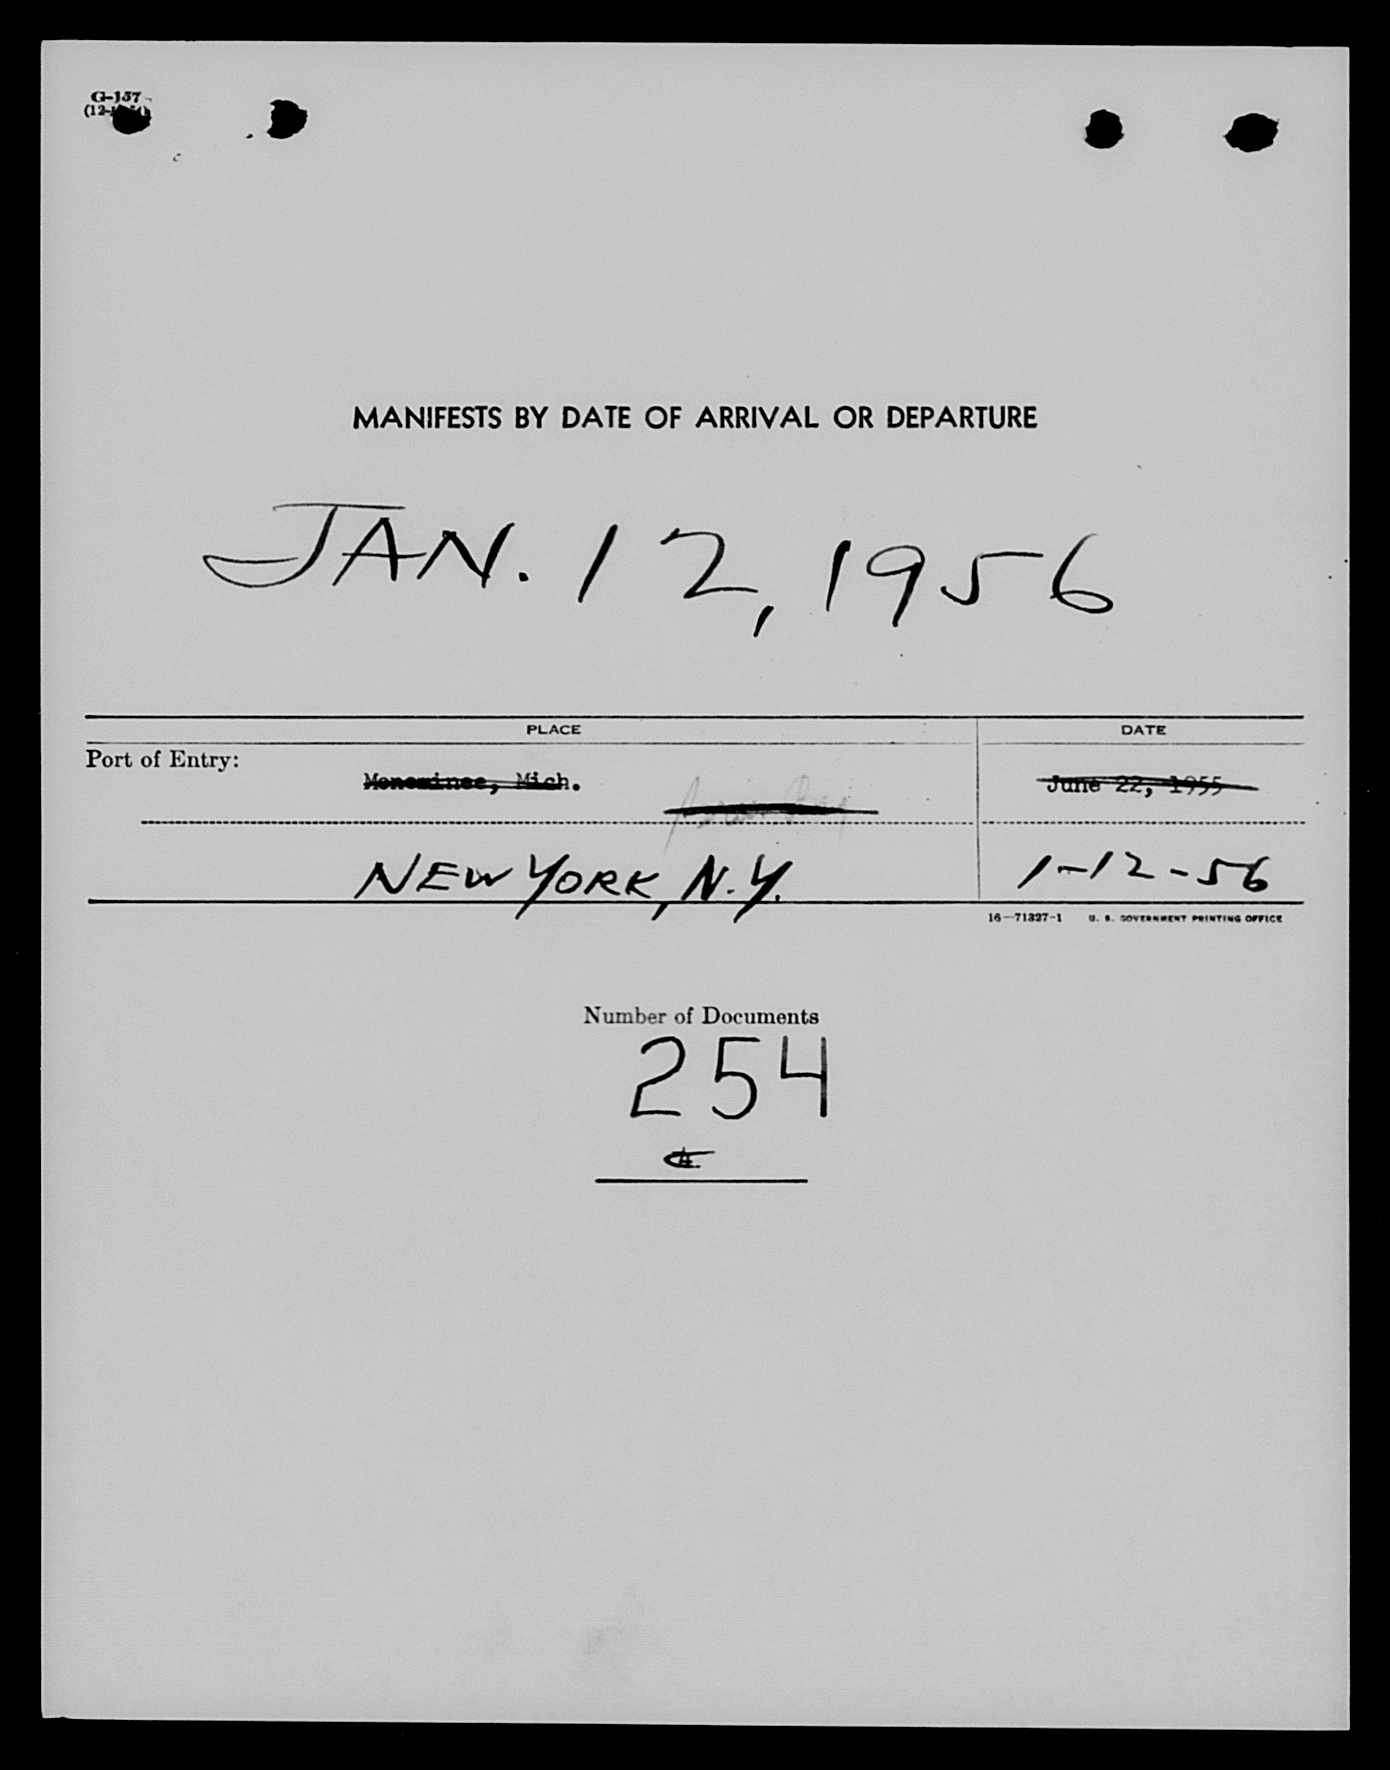 G-157
MANIFESTS BY DATE OF ARRIVAL OR DEPARTURE
JAN. 12, 1956
PLACE DATE
Port of Entry:
Menominee, Mich. June 22, 1955
NEW YORK, N.Y. 1-12-56
16—71327-1 U. S. GOVERNMENT PRINTING OFFICE
Number of Documents
254